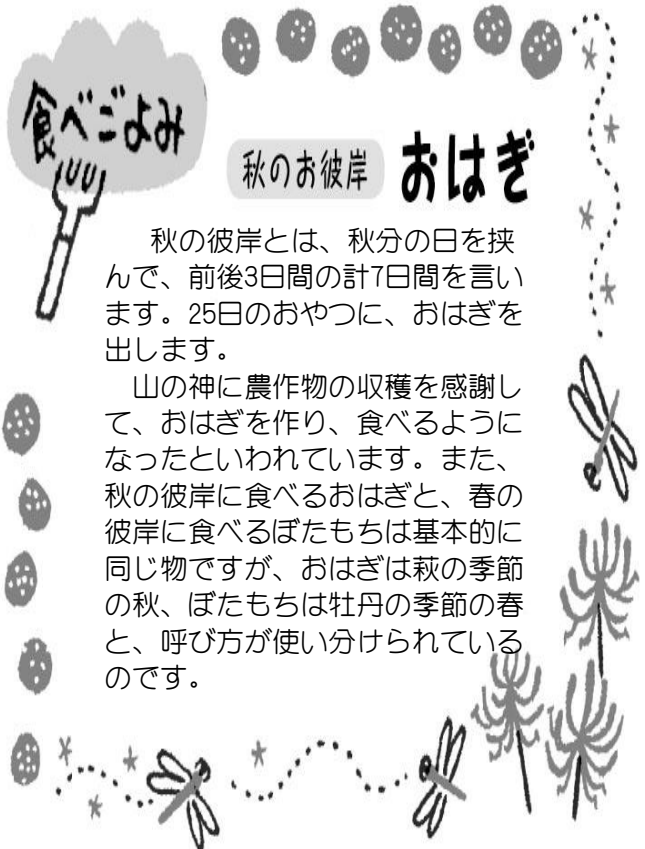 食べごよみ
秋のお彼岸 おはぎ
秋の彼岸とは、秋分の日を挟
んで、前後3日間の計7日間を言い
ます。25日のおやつに、おはぎを
出します。
山の神に農作物の収穫を感謝し
て、おはぎを作り、食べるように
なったといわれています。また、
秋の彼岸に食べるおはぎと、春の
彼岸に食べるぼたもちは基本的に
同じ物ですが、おはぎは萩の季節
の秋、ぼたもちは牡丹の季節の春
と、呼び方が使い分けられている
のです。